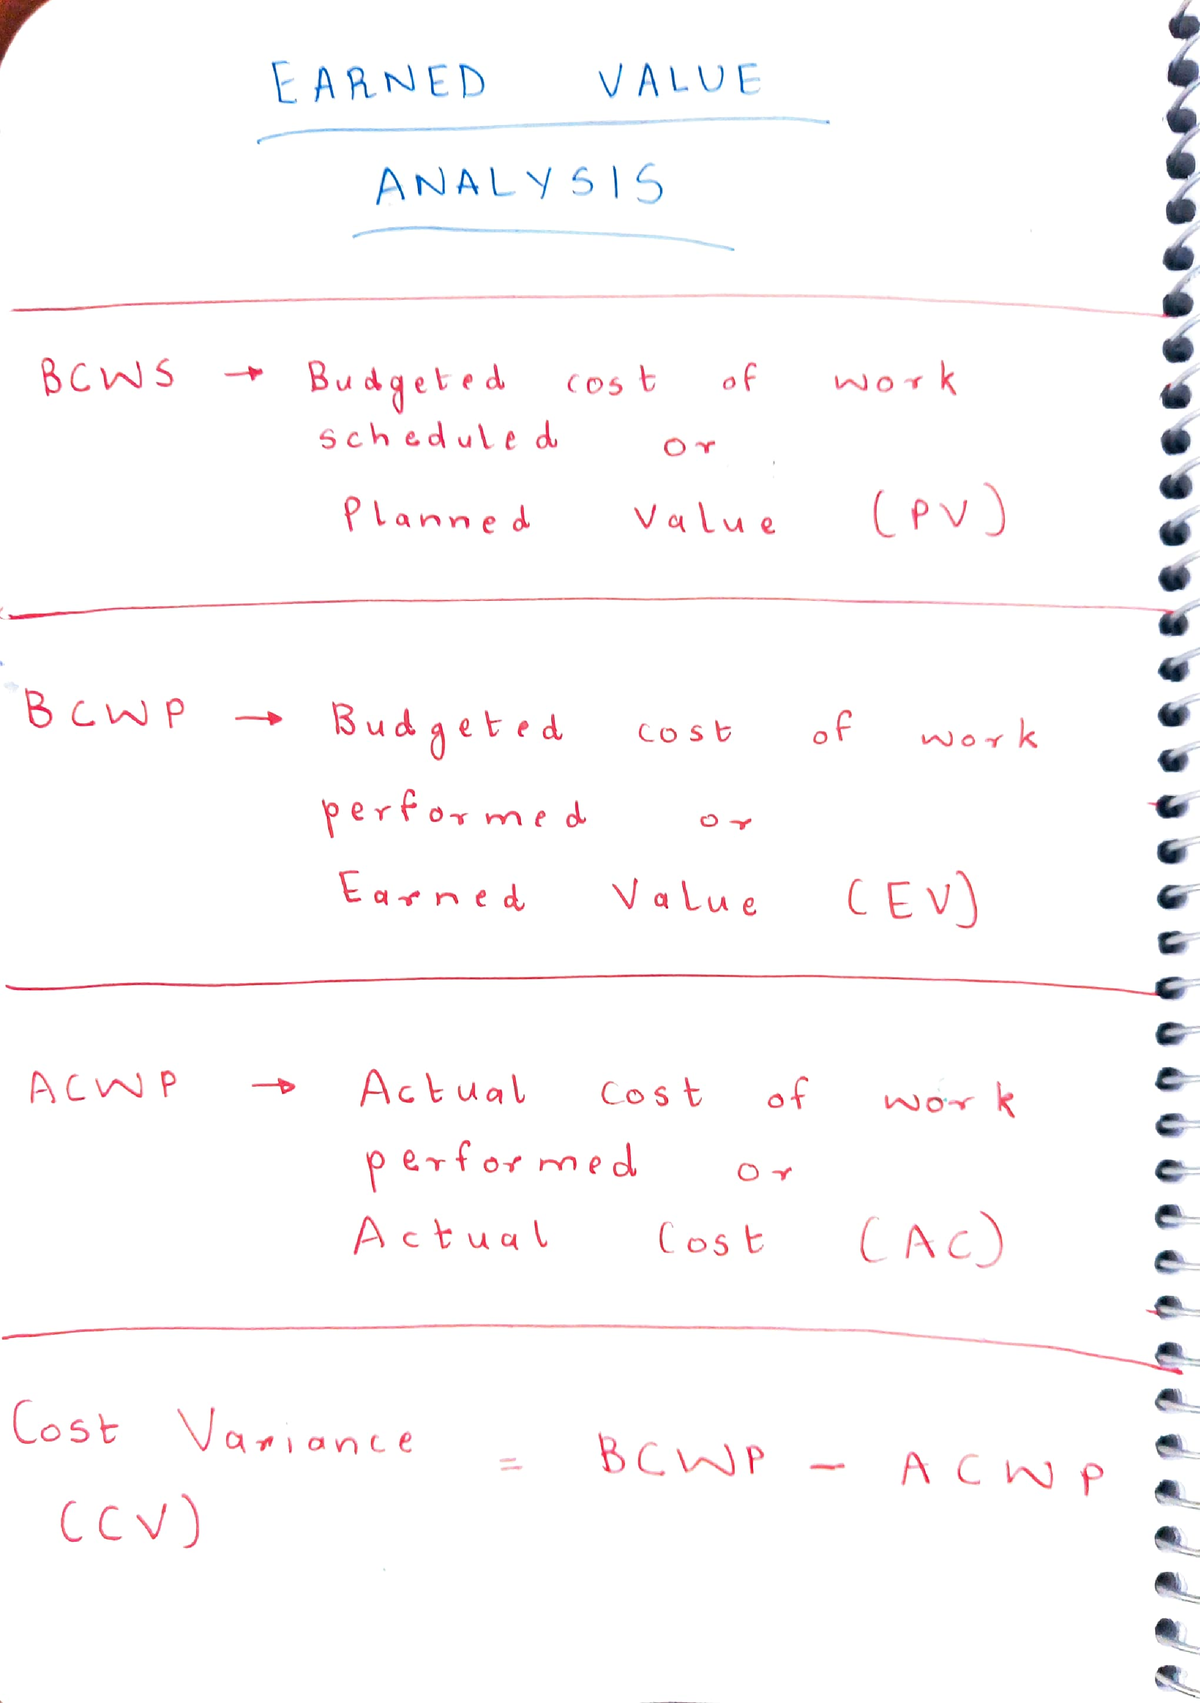 EARNED VALUE
ANALYSIS
BCWS → Budgeted cost of work
scheduled or
Planned Value (PV)
BCWP → Budgeted cost of work
performed or
Earned Value (EV)
ACWP → Actual cost of work
performed or
Actual Cost (AC)
Cost Variance = BCWP - ACWP
(CV)